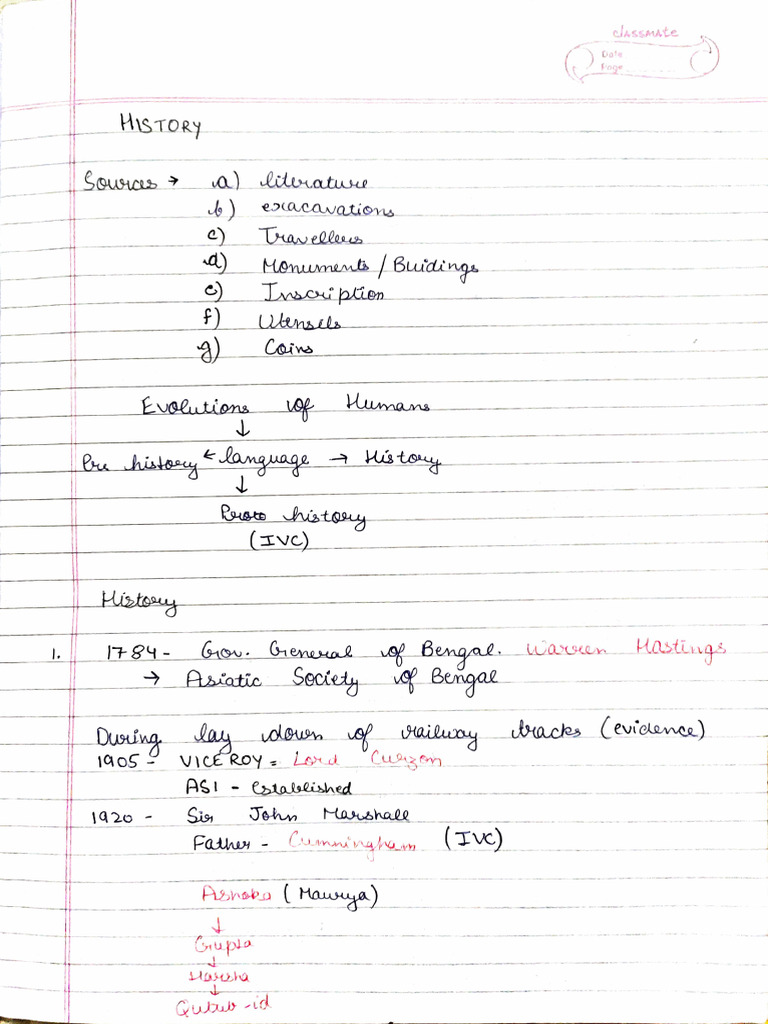 classmate
Date
Page
HISTORY
Sources → a) literature
b) exacavations
c) Travellers
d) Monuments / Buidings
e) Inscription
f) Utensels
g) Coins
Evolutions of Humans
↓
Pre history ← language → History
↓
Proto history
(IVC)
History
1. 1784 - Gov. General of Bengal. Warren Hastings
→ Asiatic Society of Bengal
During lay down of railway tracks (evidence)
1905 - VICEROY = Lord Curzon
ASI - established
1920 - Sir John Marshall
Father - Cumningham (IVC)
Ashoka (Maurya)
↓
Gupta
↓
Harsha
↓
Qutub-id